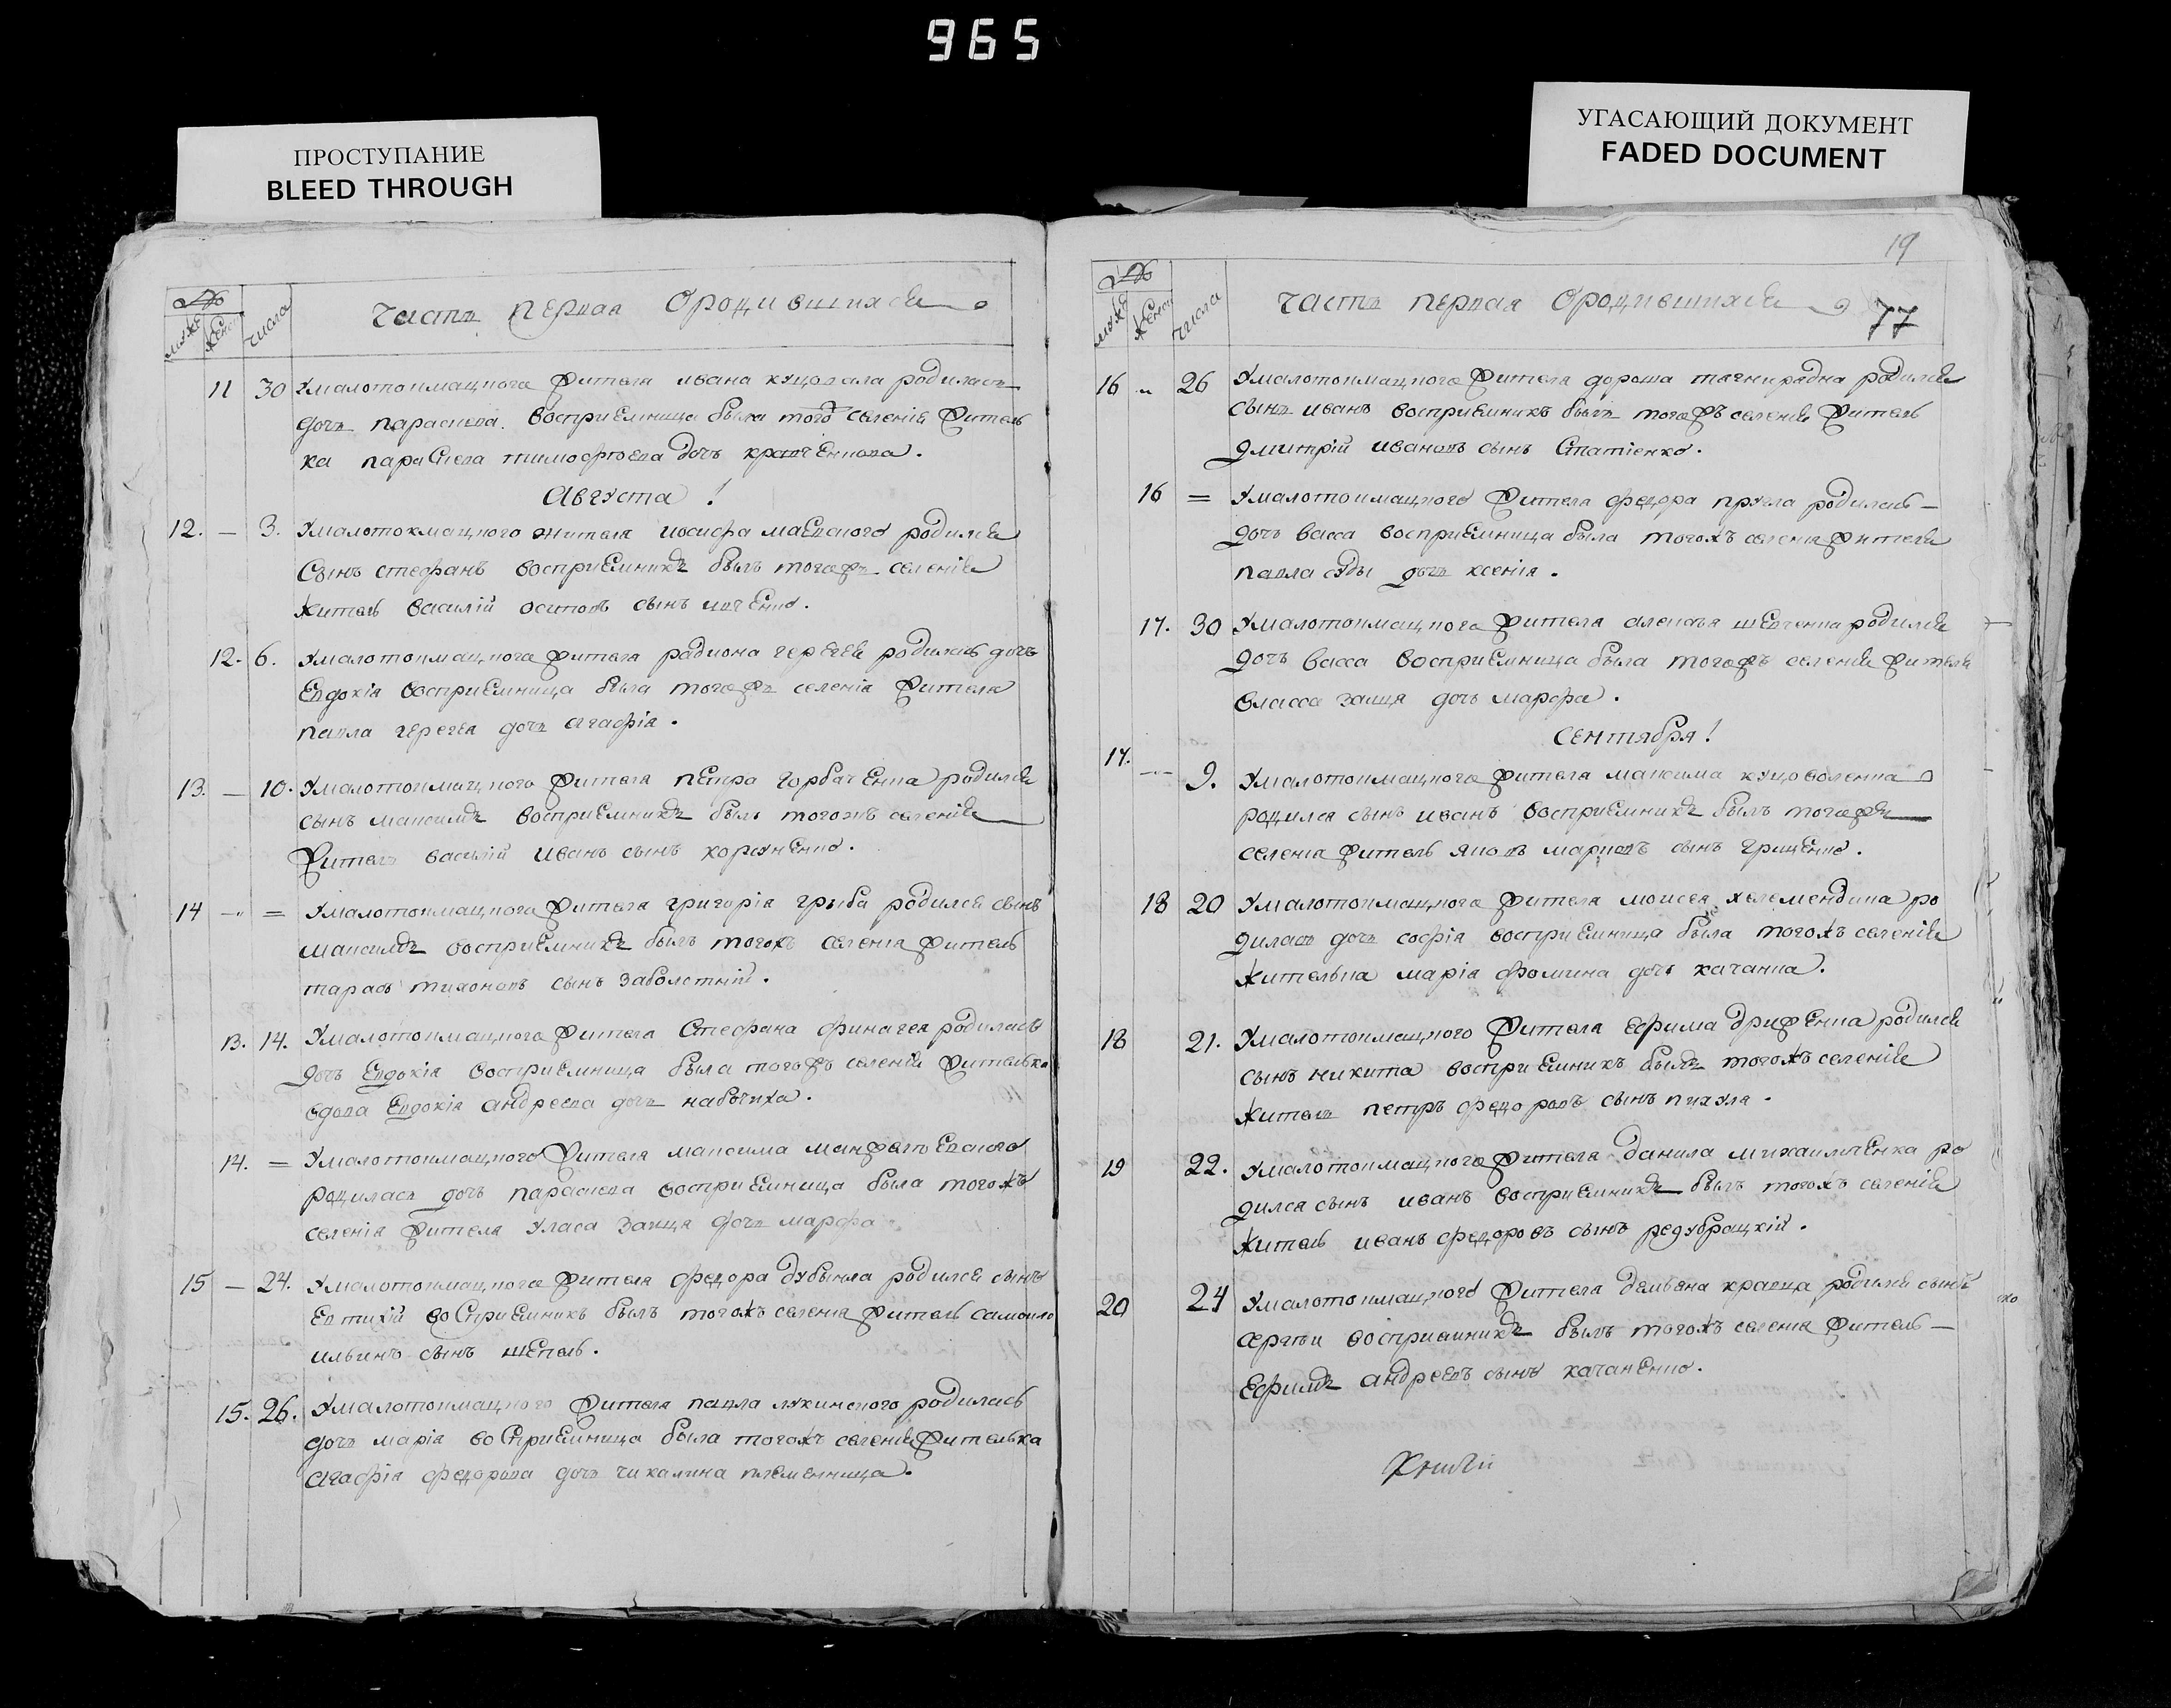 965
ПРОСТУПАНИЕ
BLEED THROUGH
УГАСАЮЩИЙ ДОКУМЕНТ
FADED DOCUMENT
№
муже
женс
числа
часть первая Ородившихся
11 30 Умалотокмацкога жителя ивана куцовала родилась
дочь параскева. восприемница была того селенія житель
ка параскева тимофѣева дочь кравченкова.
Августа !
12. — 3. Умалотокмацкого жителя иосифа маевского родился
Сынъ стефанъ восприемникъ былъ тогожъ селенія
житель василій осиповъ сынъ ивченко.
12. 6. Умалотокмацкога жителя радиона герегея родилась дочь
Евдокія восприемница была тогожъ селенія жителя
павла герегея дочь агафія.
13. — 10. Умалотокмацкого жителя петра горбаченка родился
сынъ максимъ восприемникъ былъ тогожъ селенія
житель василій иванъ сынъ коржненко.
14 — = Умалотокмацкога жителя григорія грыба родился сынъ
максимъ восприемникъ былъ тогожъ селенія житель
тарасъ тихоновъ сынъ заболотній.
13. 14. Умалотокмацкога жителя Стефана финагея родилась
дочь Евдокія восприемница была тогожъ селенія жителька
вдова Евдокія андреева дочь набочиха.
14. = Умалотокмацкого жителя максима манжелѣевского
родилась дочь параскева восприемница была тогожъ
селенія жителя уласа заица дочь марфа
15 — 24. Умалотокмацкога жителя федора дубынка родился сынъ
Евтихій восприемникъ былъ тогожъ селенія житель самоило
ильинъ сынъ шепель.
15. 26. Умалотокмацкого жителя павла лукинского родилась
дочь марія восприемница была тогожъ селенія жителька
агафія федорова дочь чикалина племенница.
19
№
муже
женск
числа
часть первая Ородившихся 77
16 26 Умалотокмацкога жителя дороша родился
сынъ иванъ восприемникъ былъ тогожъ селенія житель
дмитрій ивановъ сынъ Ипатіенко.
16 = Умалотокмацкого жителя федора пругла родилась
дочь васса восприемница была тогожъ селенія жителя
павла суды дочь ксенія.
17. 30 Умалотокмацкога жителя алексѣя шевченка родился
дочь васса восприемница была тогожъ селенія жителя
власса заиця дочь марфа.
Сентября !
17. — 9. Умалотокмацкога жителя максима куцоволенка
родился сынъ иванъ восприемникъ былъ тогожъ
селенія житель яковъ марковъ сынъ грищенко.
18 20 Умалотокмацкога жителя моисея желемендина ро
дилась дочь софія восприемница была тогожъ селенія
жителька марія фомина дочь качанка.
18 21. Умалотокмацкого жителя ефима дриженка родился
сынъ никита восприемникъ былъ тогожъ селенія
житель петръ федоровъ сынъ пихуля.
19 22. Умалотокмацкога жителя данила михаильченка ро
дился сынъ иванъ восприемникъ былъ тогожъ селенія
житель иванъ федоровъ сынъ редубрацкій.
20 24 Умалотокмацкого жителя демьяна кравца родился сынъ
сергѣи восприемникъ былъ тогожъ селенія житель
Ефимъ андреевъ сынъ качаненко.